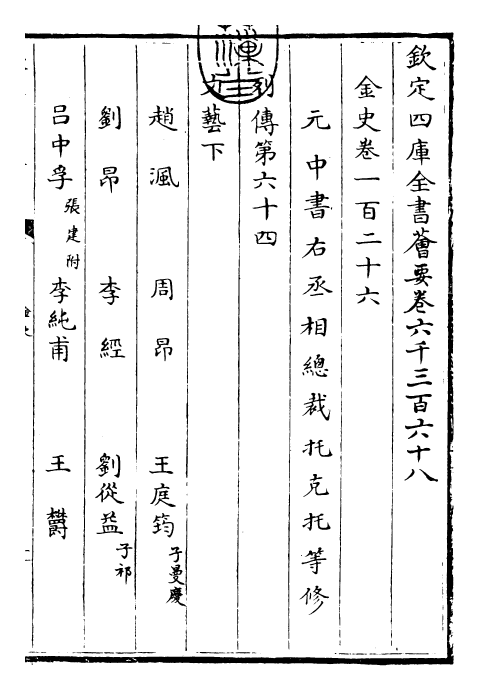 欽定四庫全書薈要卷六千三百六十八
金史卷一百二十六
元中書右丞相總裁托克托等修
列傳第六十四
文藝下
趙渢 周昂 王庭筠子曼慶
劉昂 李經 劉從益子祁
呂中孚張建附 李純甫 王鬱